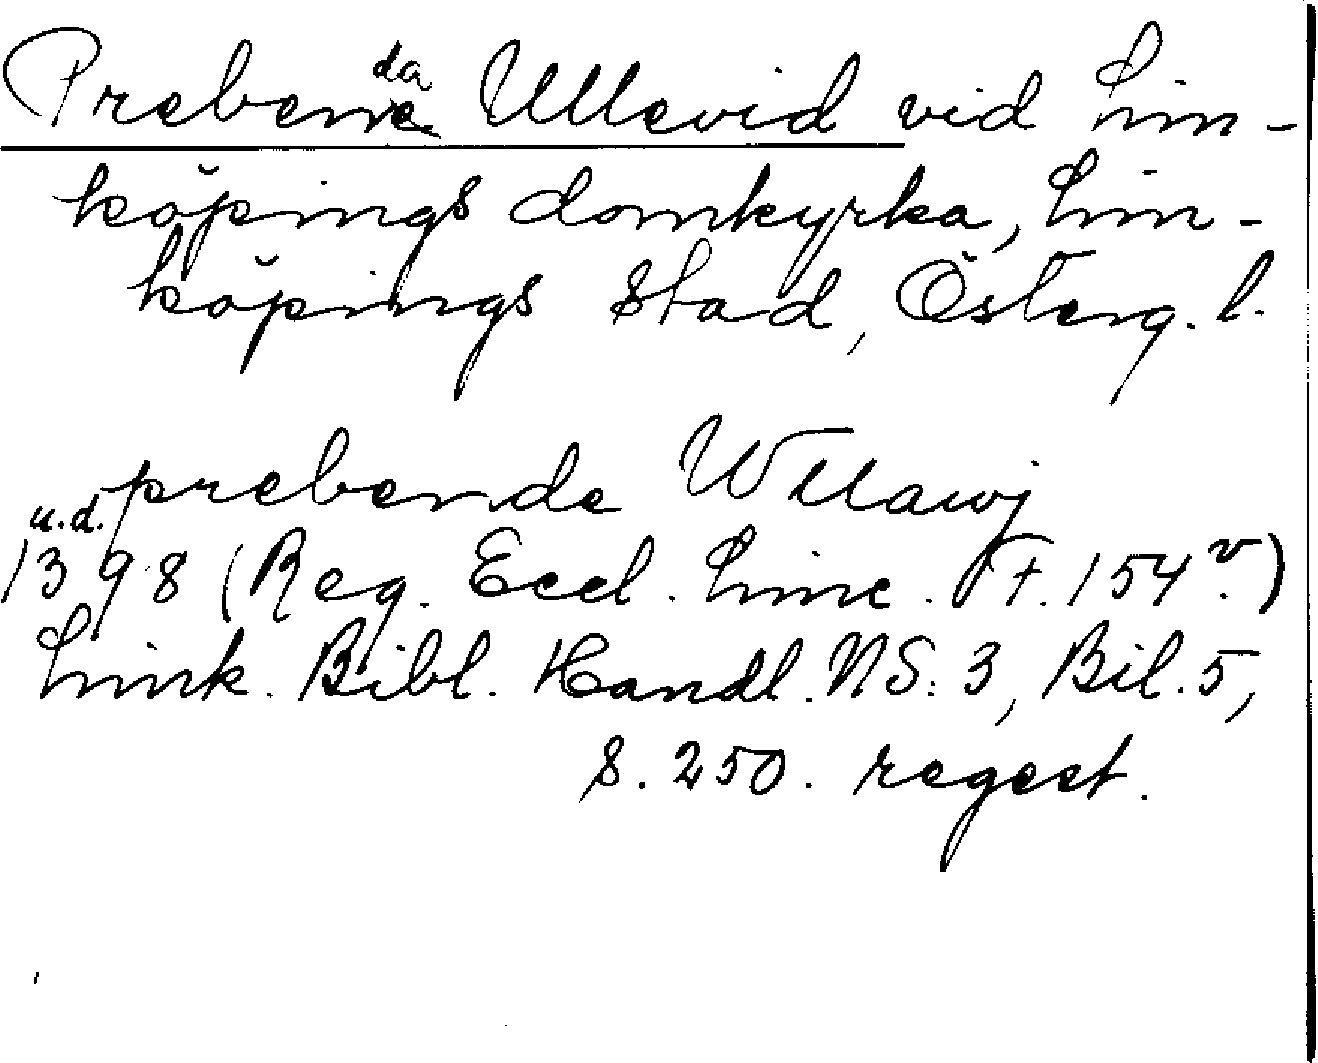 Prebenda Ullevid vid Lin-
köpings domkyrka, Lin-
köpings stad, Österg. l.
prebende Wllawj
u.d.
1398 (Reg. Eccl. Linc. F. 154 v.)
Link. Bibl. Handl. NS: 3, Bil. 5,
S. 250. regest.